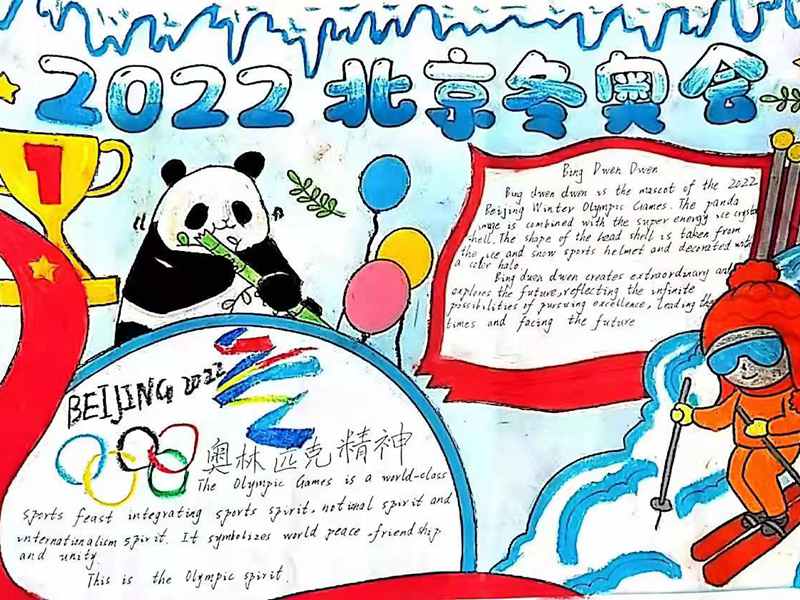 2022 北京冬奥会
1
Bing Dwen Dwen
Bing dwen dwen is the mascot of the 2022
Beijing Winter Olympic Games. The panda
image is combined with the super energy ice crystal
shell. The shape of the head shell is taken from
the ice and snow sports helmet and decorated with
a color halo.
Bing dwen dwen creates extraordinary and
explores the future, reflecting the infinite
possibilities of pursuing excellence, leading the
times and facing the future
BEIJING 2022
奥林匹克精神
The Olympic Games is a world-class
sports feast integrating sports spirit, notional spirit and
internationalism spirit. It symbolizes world peace-friendship
and unity
This is the Olympic spirit.